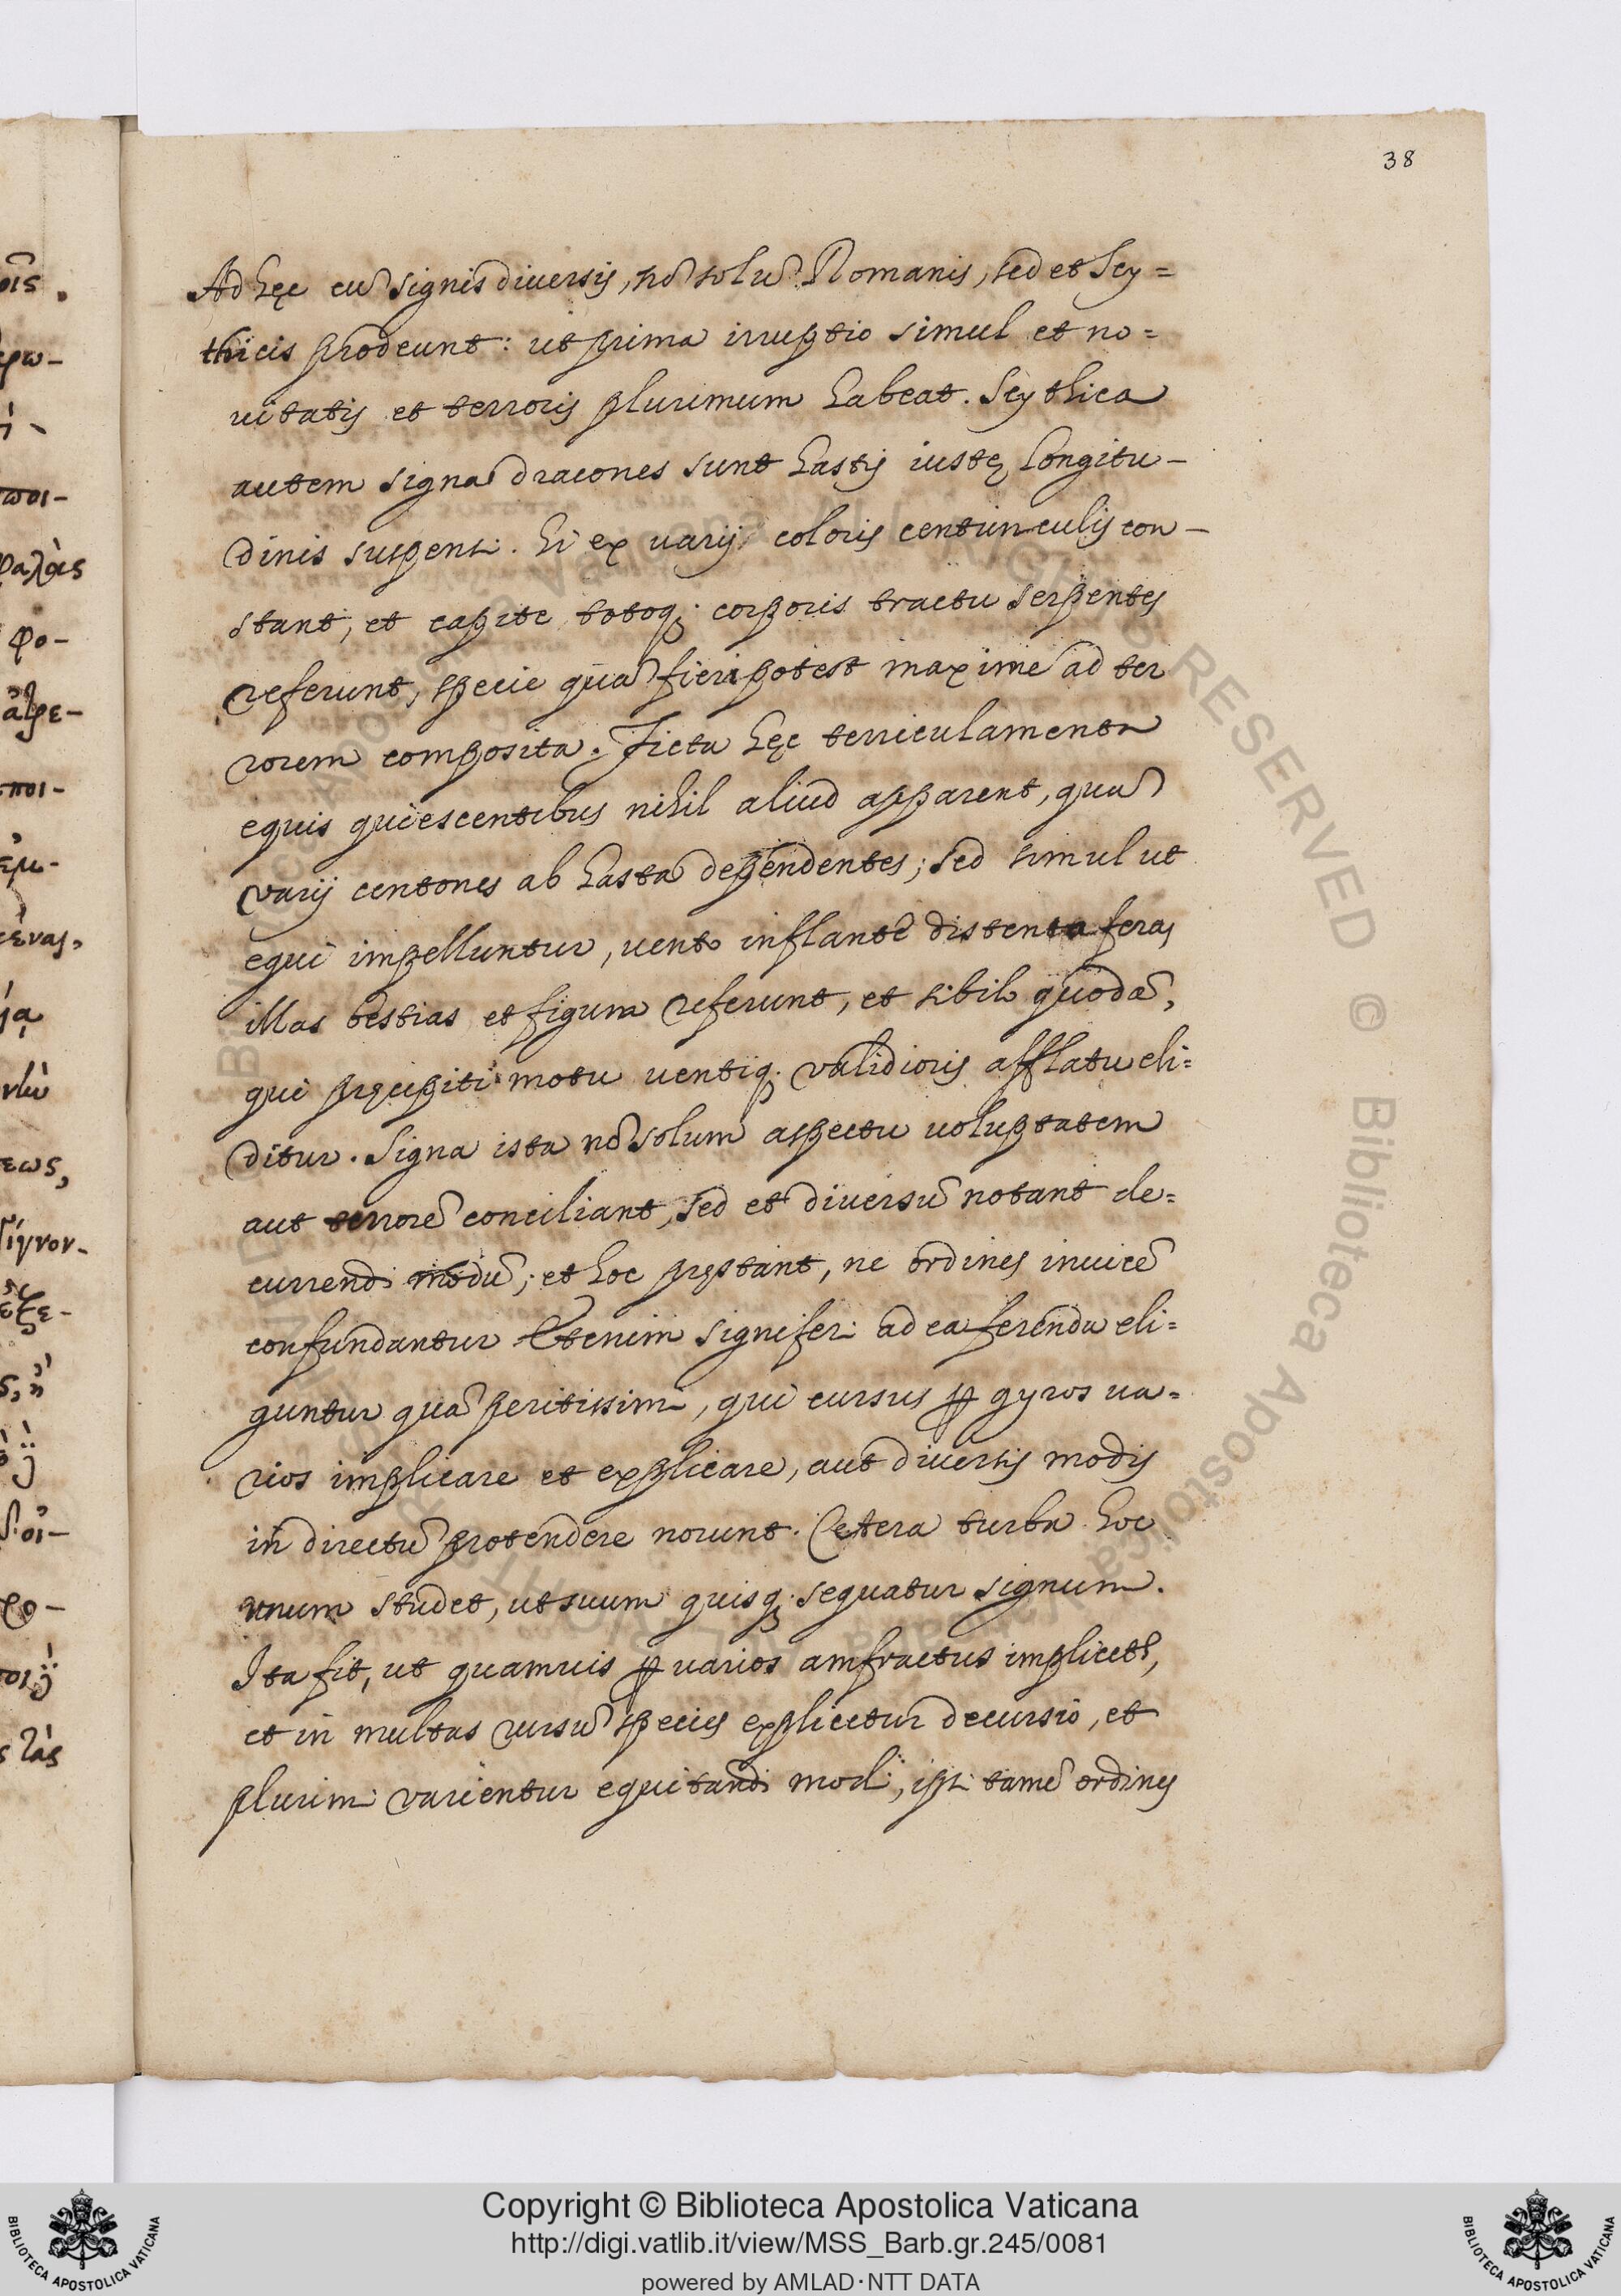 38
Ad hęc cũ signis diuersis, nõ solũ Romanis, sed et Scy=
thicis prodeunt: ut prima irruptio simul et no=
uitatis et terroris plurimum habeat. Scythica
autem signa dracones sunt hastis iustę longitu-
dinis suspensi. hi ex varijs coloris centunculis con-
stant, et capite totoq; corporis tractu serpentes
referunt, specie quã fieri potest maxime ad ter
rorem composita. Ficta hęc terriculamenta
equis quiescentibus nihil aliud apparent, quã
varij centones ab hasta dependentes; sed simul ut
equi impelluntur, vento inflante distenta feras
illas bestias et figura referunt, et sibilo quodã,
qui pręcipiti motu uentiq; validioris afflatu eli=
ditur. Signa ista nõ solum aspectu uoluptatem
aut terrorẽ conciliant, sed et diuersũ notant de=
currendi modũ; et hoc pręstant, ne ordines inuicẽ
confundantur Etenim signiferi ad ea ferenda eli=
guntur quã peritissimi, qui cursus ꝑ gyros ua=
rios implicare et explicare, aut diuersis modis
in directũ protendere norunt. Cetera turba hoc
unum studet, ut suum quisq; sequatur signum.
Ita fit, ut quamuis ꝑ varios amfractus implicet^r,
et in multas rursũ species explicetur decursio, et
plurimi varientur equitandi modi, ipsi tamẽ ordines
οις.
ρω-
ποι-
φαλὰς
φο-
ποι-
ἐμ-
ένας,
εως,
Γίγνον-
ἐξε-
ς, ἢ
ς τὰς
BIBLIOTECA APOSTOLICA VATICANA
Copyright © Biblioteca Apostolica Vaticana
http://digi.vatlib.it/view/MSS_Barb.gr.245/0081
powered by AMLAD·NTT DATA
BIBLIOTECA APOSTOLICA VATICANA